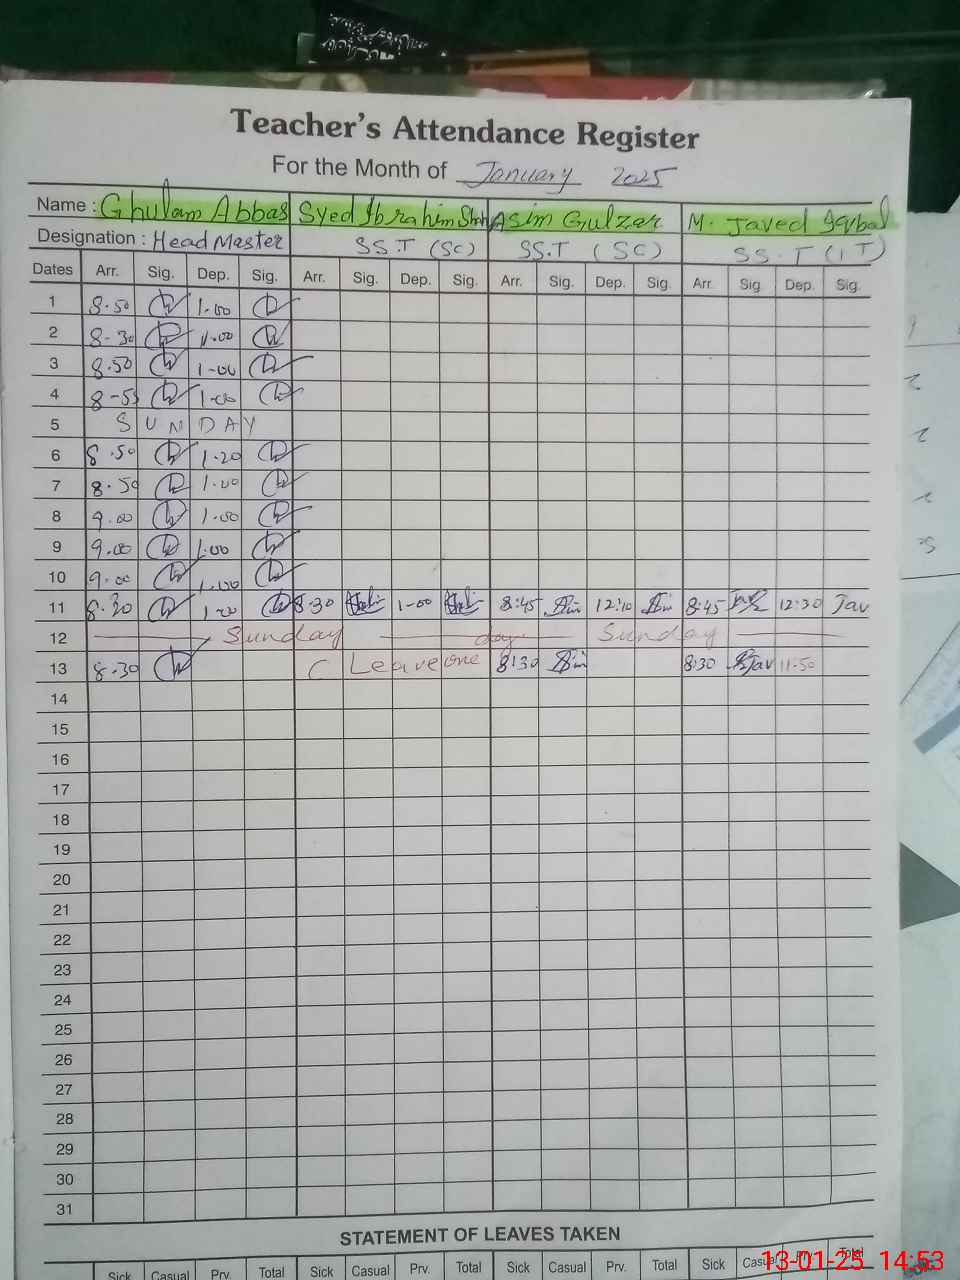 Teacher's Attendance Register
For the Month of January 2025
Name : Ghulam Abbas Syed Ibrahim Shah Asim Gulzar M. Javed Iqbal
Designation : Head Master SS.T (SC) SS.T (SC) SS.T (IT)
Dates Arr. Sig. Dep. Sig. Arr. Sig. Dep. Sig. Arr. Sig. Dep. Sig. Arr. Sig. Dep. Sig.
1 8.50 1.00
2 8-30 1.00
3 8.50 1-00
4 8-55 1.00
5 SUNDAY
6 8.50 1.20
7 8.50 1.00
8 9.00 1.00
9 9.00 1.00
10 9.00 1.00
11 8.30 1.00 8-30 1-00 8:45 12:10 8:45 12:30 Jav
12 Sunday day Sunday
13 8.30 C Leave one 8:30 8:30 Jav 11-50
14
15
16
17
18
19
20
21
22
23
24
25
26
27
28
29
30
31
STATEMENT OF LEAVES TAKEN
Sick Casual Prv. Total Sick Casual Prv. Total Sick Casual Prv. Total Sick Casual Prv. Total
13-01-25 14:53